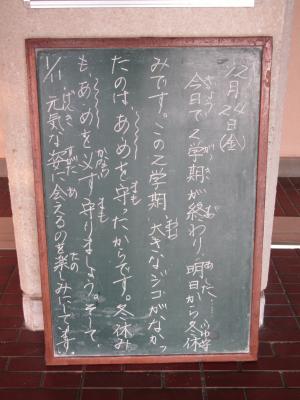 12月24日(金)
今日で2学期が終わり、明日から冬休
みです。この2学期、大きなジコがなかっ
たのは、あめを守ったからです。冬休み
も、あめを必ず守りましょう。そして、
1/11 元気な姿に会えるのを楽しみにしています。